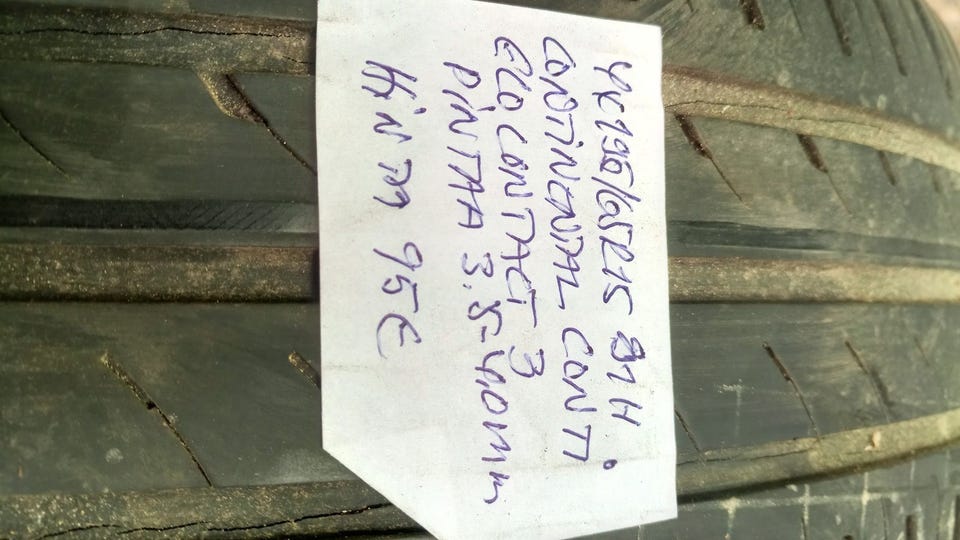 4x195/65R15 91H
CONTINENTAL CONTI
ECO CONTACT 3
PINTAA 3.5-4.0mm
HINTA 95€